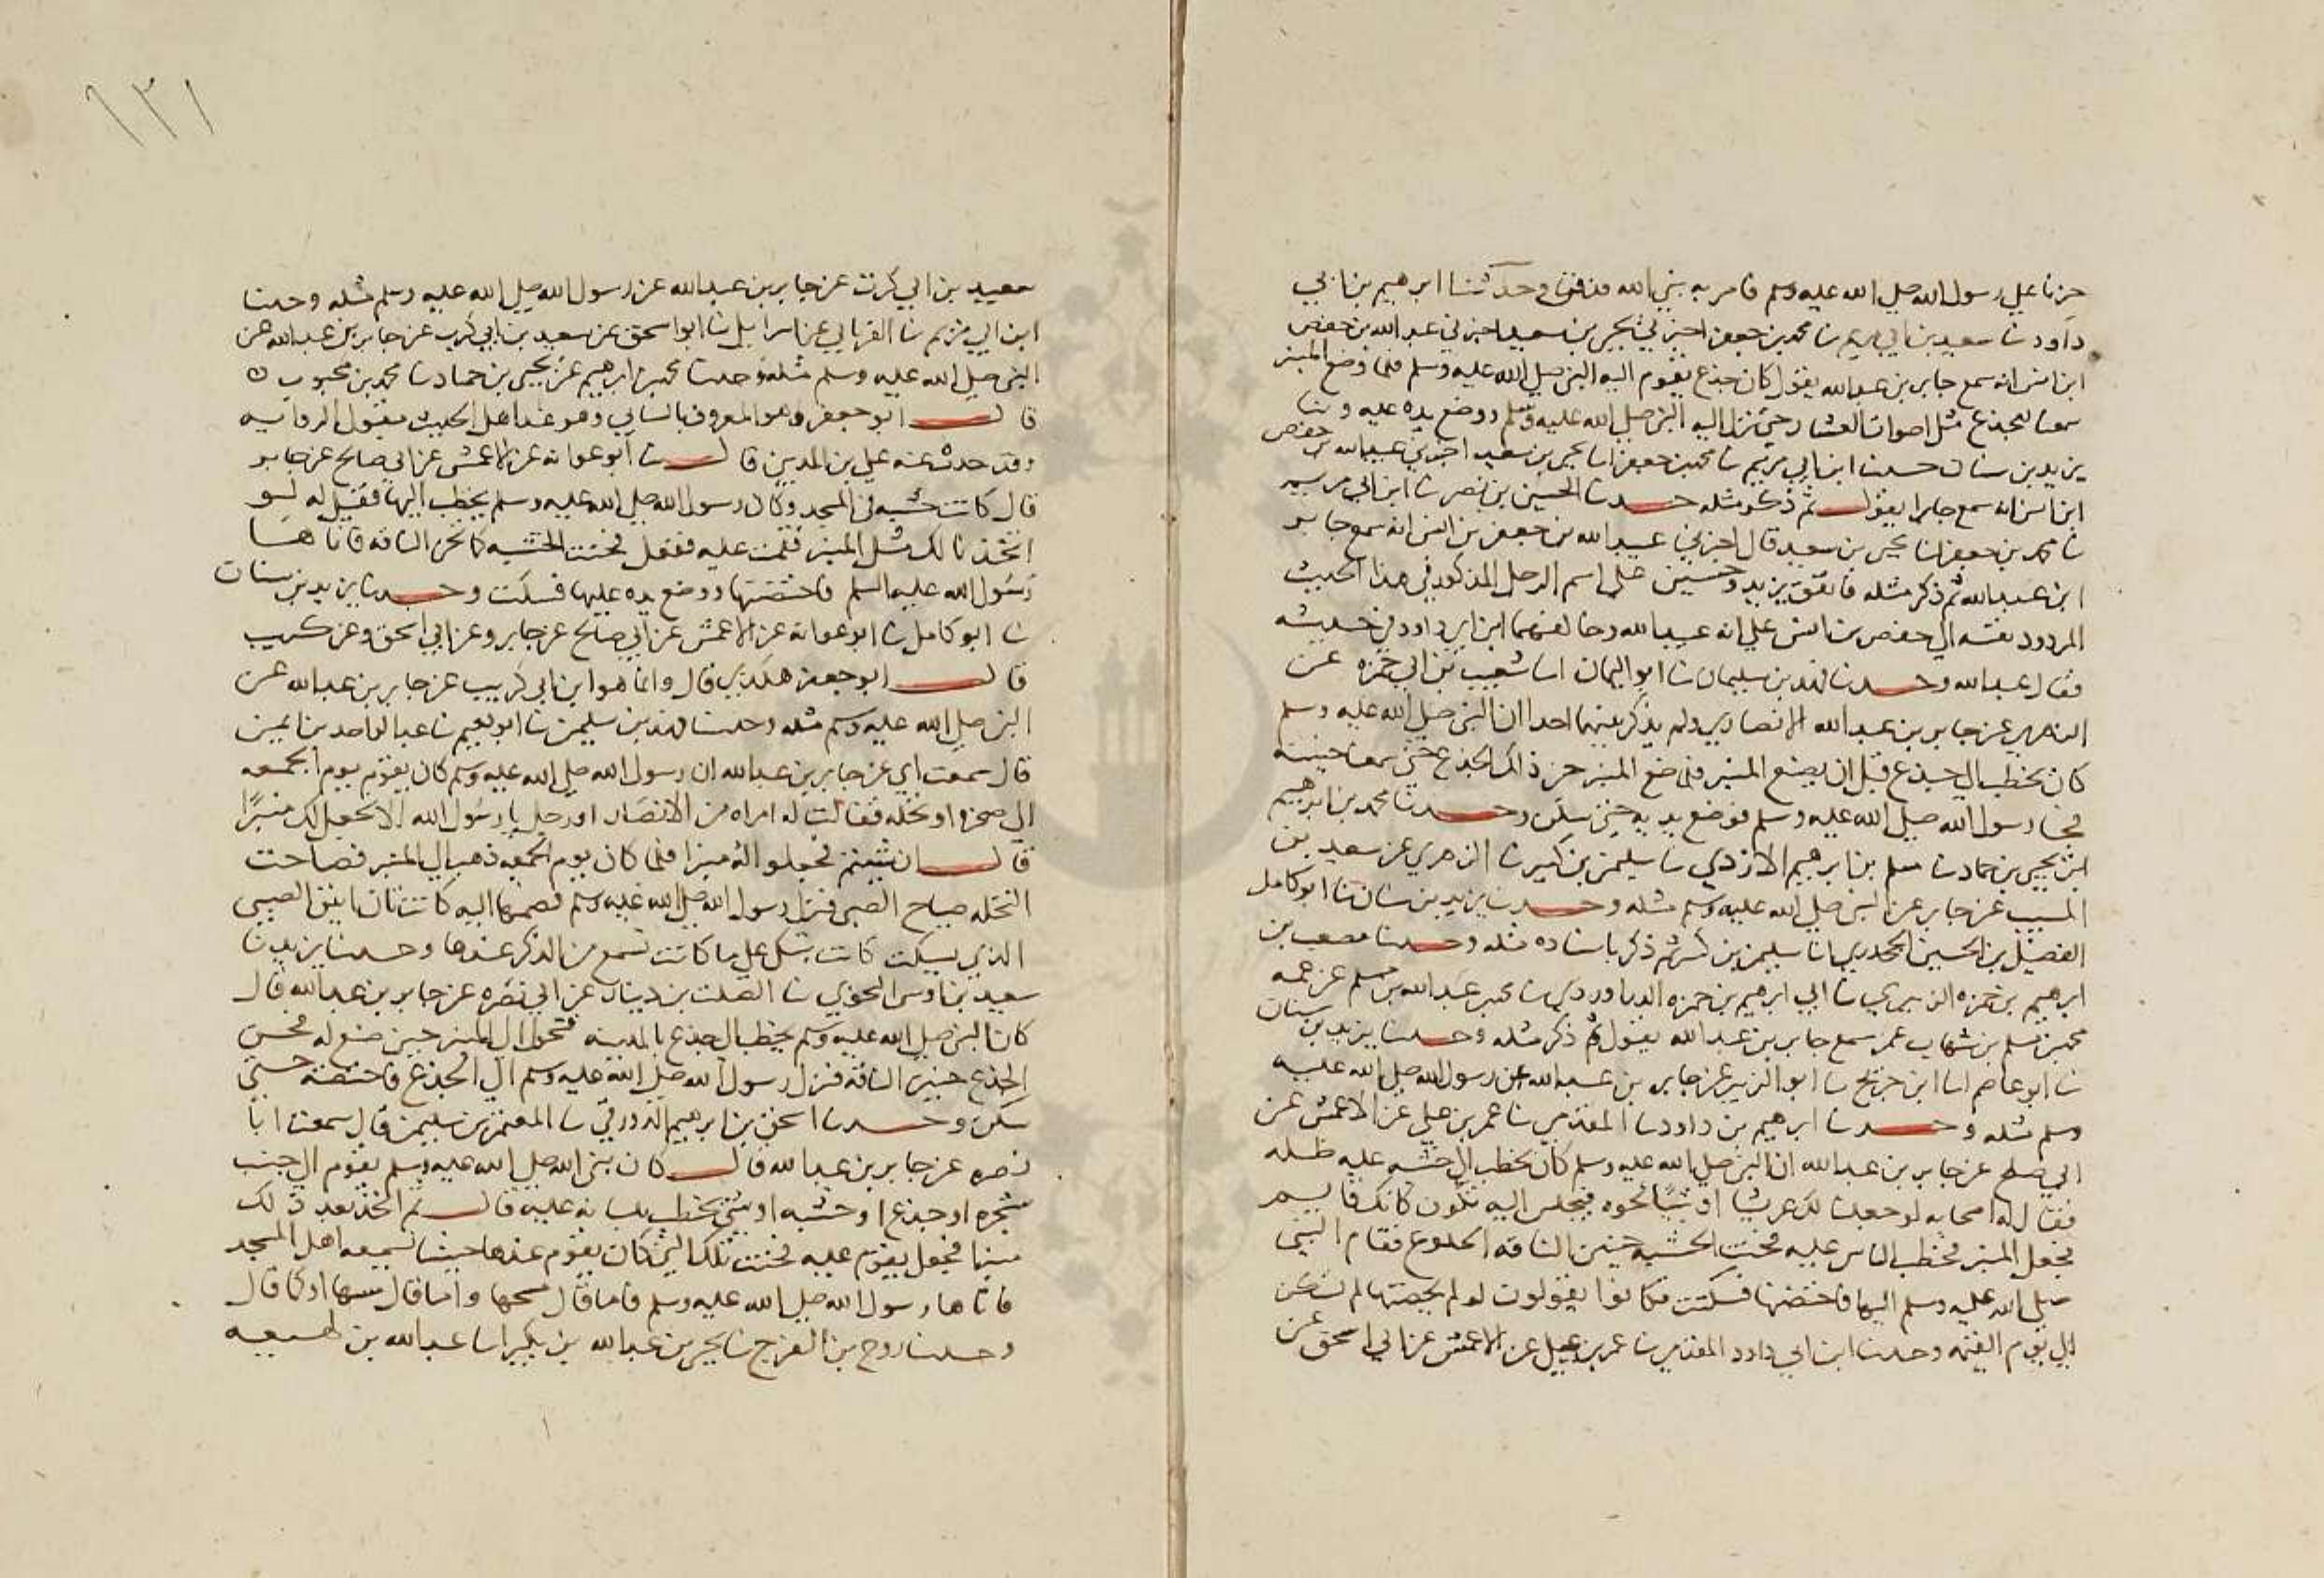 حزنا على رسول الله صلى الله عليه وسلم فامر به نبي الله فدفن وحدثنا ابرهيم بن ابي
داود نا سعيد بن ابي مريم نا محمد بن جعفر اخبرني يحيى بن سعيد اخبرني عبد الله بن حفص
ابن انس انه سمع جابر بن عبد الله يقول كان جذع يقوم اليه النبي صلى الله عليه وسلم فلما وضع المنبر
سمعنا للجذع مثل اصوات العشار حتى نزل اليه النبي صلى الله عليه وسلم ووضع يده عليه وبنا
يزيد بن سنان حدثنا ابن ابي مريم نا محمد بن جعفر انا يحيى بن سعيد اخبرني عبيد الله بن حفص
ابن انس انه سمع جابرا يقول ثم ذكر مثله حدثنا الحسين بن نصر نا ابن ابي مريم
نا محمد بن جعفر انا يحيى بن سعيد قال اخبرني عبيد الله بن جعفر بن انس انه سمع جابر
ابن عبد الله ثم ذكر مثله فاتفق يزيد وحسين على اسم الرجل المذكور في هذا الحديث
المردود نفسه الى حفص بن انس على انه عبيد الله وخالفهما ابن ابي داود في حديثه
فقال عبد الله وحدثنا فهد بن سليمان نا ابو اليمان انا شعيب بن ابي حمزه عن
الزهري عن جابر بن عبد الله الانصاري ولم يذكر بينهما احدا ان النبي صلى الله عليه وسلم
كان يخطب الى جذع قبل ان يصنع المنبر فلما صنع المنبر حن ذلك الجذع حتى سمعنا حنينه
فجا رسول الله صلى الله عليه وسلم فوضع يديه حتى سكن وحدثنا محمد بن ابرهيم
ابن يحيى بن حماد نا مسلم بن ابرهيم الازدي نا سليمن بن كثير نا الزهري عن سعيد بن
المسيب عن جابر عن النبي صلى الله عليه وسلم مثله وحدثنا يزيد بن سنان نا ابو كامل
الفضيل بن الحسين الجحدري نا سليمن بن كثير ثم ذكر باسناده مثله وحدثنا مصعب بن
ابرهيم بن حمزه الزبيري نا ابي ابرهيم بن حمزه الدراوردي نا محمد بن عبد الله بن مسلم عن عمه
محمد بن مسلم بن شهاب عمن سمع جابر بن عبد الله يقول ثم ذكر مثله وحدثنا يزيد بن سنان
نا ابو عاصم انا ابن جريج نا ابو الزبير عن جابر بن عبد الله عن رسول الله صلى الله عليه
وسلم مثله وحدثنا ابرهيم بن داود نا المقدمي نا عمر بن علي عن الاعمش عن
ابي صالح عن جابر بن عبد الله ان النبي صلى الله عليه وسلم كان يخطب الى خشبه عليه ظله
فقال له اصحابه لو جعلنا لك عريشا او شيا نحوه فتجلس اليه تكون كانك قايم
فجعل المنبر فخطب الناس عليه فحنت الخشبه حنين الناقه الخلوج فقام النبي
صلى الله عليه وسلم اليها فاحتضنها فسكتت فكانوا يقولون لو لم يحضنها لم تسكن
الى يوم القيمه وحدثنا ابن ابي داود المقدمي نا عمر بن علي عن الاعمش عن ابي اسحق عن
١٣١
سعيد بن ابي كرب عن جابر بن عبد الله عن رسول الله صلى الله عليه وسلم مثله وحدثنا
ابن ابي مريم نا الفريابي عن اسرائيل نا ابو اسحق عن سعيد بن ابي كرب عن جابر بن عبد الله عن
النبي صلى الله عليه وسلم مثله وحدثنا محمد بن ابرهيم عن يحيى بن حماد نا محمد بن محبوب
قال ابو جعفر وهو المعروف بالبناني وهو عند اهل الحديث مقبول الروايه
وقد حدث عنه علي بن المديني قال نا ابو عوانه عن الاعمش عن ابي صالح عن جابر
قال كانت خشبه في المسجد وكان رسول الله صلى الله عليه وسلم يخطب اليها فقيل له لو
اتخذنا لك مثل المنبر فقمت عليه ففعل فحنت الخشبه كما تحن الناقه فاتاها
رسول الله عليه السلم فاحتضنها ووضع يده عليها فسكنت وحدثنا يزيد بن سنان
نا ابو كامل نا ابو عوانه عن الاعمش عن ابي صالح عن جابر وعن ابي اسحق وعن كريب
قال ابو جعفر هكذي قال وانما هو ابن ابي كريب عن جابر بن عبد الله عن
النبي صلى الله عليه وسلم مثله وحدثنا فهد بن سليمن نا ابو نعيم نا عبد الواحد بن ايمن
قال سمعت ابي عن جابر بن عبد الله ان رسول الله صلى الله عليه وسلم كان يقوم يوم الجمعه
الى صخره او نخله فقالت له امراه من الانصار او رجل يا رسول الله الا نجعل لك منبرا
قال ان شيتم فجعلوا له منبرا فلما كان يوم الجمعه ذهب الى المنبر فصاحت
النخله صياح الصبي فنزل رسول الله صلى الله عليه وسلم فضمها اليه كانت تان انين الصبي
الذي يسكت كانت تبكي على ما كانت تسمع من الذكر عندها وحدثنا يزيد نا
سعيد بن اوس النحوي نا الصلت بن دينار عن ابي نضره عن جابر بن عبد الله قال
كان النبي صلى الله عليه وسلم يخطب الى جذع بالمدينه فتحول الى المنبر حين صنع له فحن
الجذع حنين الناقه فنزل رسول الله صلى الله عليه وسلم الى الجذع فاحتضنه حتى
سكن وحدثنا اسحق بن ابرهيم الدورقي نا المعتمر بن سليمن قال سمعت ابا
نضره عن جابر بن عبد الله قال كان نبي الله صلى الله عليه وسلم يقوم الى جنب
شجره او جذع او خشبه او شي يخطب عليه قال ثم اتخذ بعد ذلك
منبرا فجعل يقوم عليه فحنت تلك التي كان يقوم عندها حنينا سمعه اهل المسجد
فاتاها رسول الله صلى الله عليه وسلم فاما قال مسحها واما قال مسها او كما قال
وحدثنا روح بن الفرج نا يحيى بن عبد الله بن بكير انا عبد الله بن لهيعه